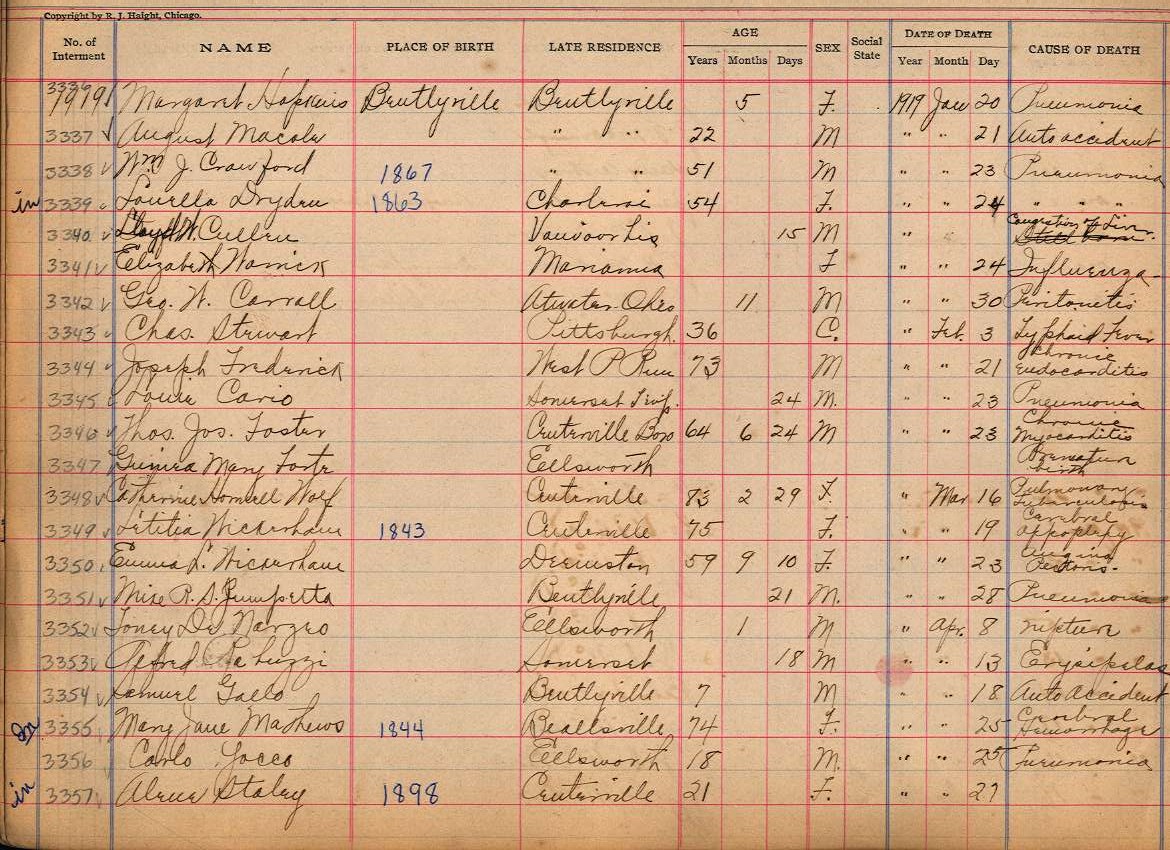 Copyright by R. J. Haight, Chicago.
No. of Interment NAME PLACE OF BIRTH LATE RESIDENCE AGE Years Months Days SEX Social State DATE OF DEATH Year Month Day CAUSE OF DEATH
3336 1919 Margaret Hopkins Bentlyville Bentlyville 5 F. 1919 Jan 20 Pneumonia
3337 August " " 22 M " " 21 Auto accident
3338 Wm J. Crawford 1867 " " 51 M " " 23 Pneumonia
in 3339 Louella Dryden 1863 Charleroi 54 F. " " 24 " " "
3340 Lloyd W. Cullen 15 M " Congestion of Liver. Still born
3341 Elizabeth Warrick Marianna F " " 24 Influenza
3342 Geo. W. Carrall Atwater Ohio 11 M " " 30 Peritonitis
3343 Chas. Stewart Pittsburgh. 36 C. " Feb. 3 Typhoid Fever
3344 Joseph Frederick West P Run 73 M " " 21 Chronic Endocarditis
3345 Louie Cario Somerset Twp. 24 M. " " 23 Pneumonia
3346 Thos. Jos. Foster Centerville Boro 64 6 24 M " " 23 Chronic Myocarditis
3347 Mary Eellsworth Premature birth
3348 Catherine Wolf Centerville 83 2 29 F. " Mar 16 Pulmonary Tuberculosis
3349 Letitia Wickerham 1843 Centerville 75 F. " " 19 Cerebral Appoplexy
3350 Emma L. Wickerham Deemston 59 9 10 F. " " 23 Angina Pectoris.
3351 R. S. Bentlyville 21 M. " " 28 Pneumonia
3352 Toney De Eellsworth 1 M " Apr. 8
3353 Alfred Somerset 18 M " " 13 Erysipelas
3354 Samuel Gallo Bentlyville 7 M " " 18 Auto Accident
In 3355 Mary Jane Mathews 1844 Beallsville 74 F. " " 25 Cerebral Hemorrhage
3356 Carlo Eellsworth 18 M. " " 25 Pneumonia
in 3357 Staley 1898 Centerville 21 F. " " 27